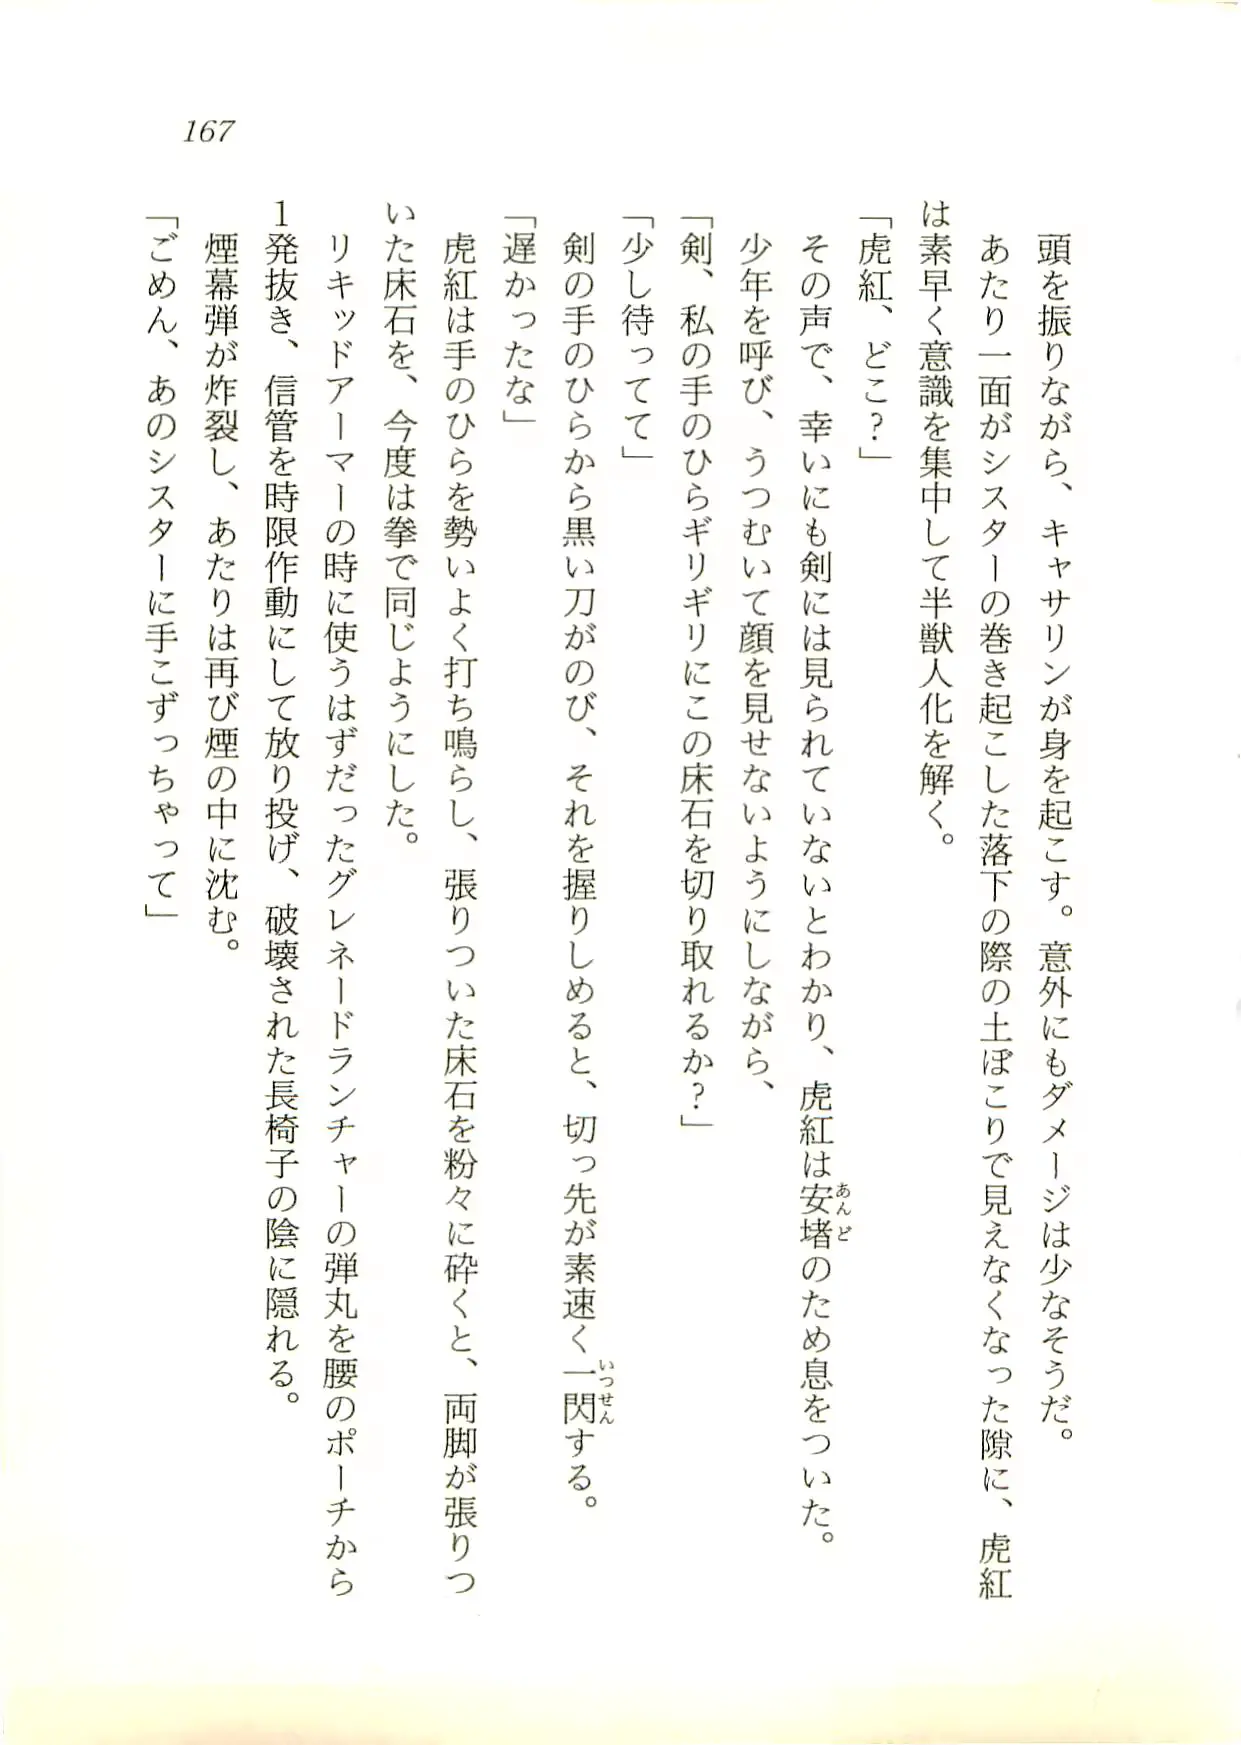 167
頭を振りながら、キャサリンが身を起こす。意外にもダメージは少なそうだ。
あたり一面がシスターの巻き起こした落下の際の土ぼこりで見えなくなった隙に、虎紅
は素早く意識を集中して半獣人化を解く。
「虎紅、どこ？」
その声で、幸いにも剣には見られていないとわかり、虎紅は安堵のため息をついた。
少年を呼び、うつむいて顔を見せないようにしながら、
「剣、私の手のひらギリギリにこの床石を切り取れるか？」
「少し待ってて」
剣の手のひらから黒い刀がのび、それを握りしめると、切っ先が素速く一閃する。
「遅かったな」
虎紅は手のひらを勢いよく打ち鳴らし、張りついた床石を粉々に砕くと、両脚が張りつ
いた床石を、今度は拳で同じようにした。
リキッドアーマーの時に使うはずだったグレネードランチャーの弾丸を腰のポーチから
1発抜き、信管を時限作動にして放り投げ、破壊された長椅子の陰に隠れる。
煙幕弾が炸裂し、あたりは再び煙の中に沈む。
「ごめん、あのシスターに手こずっちゃって」